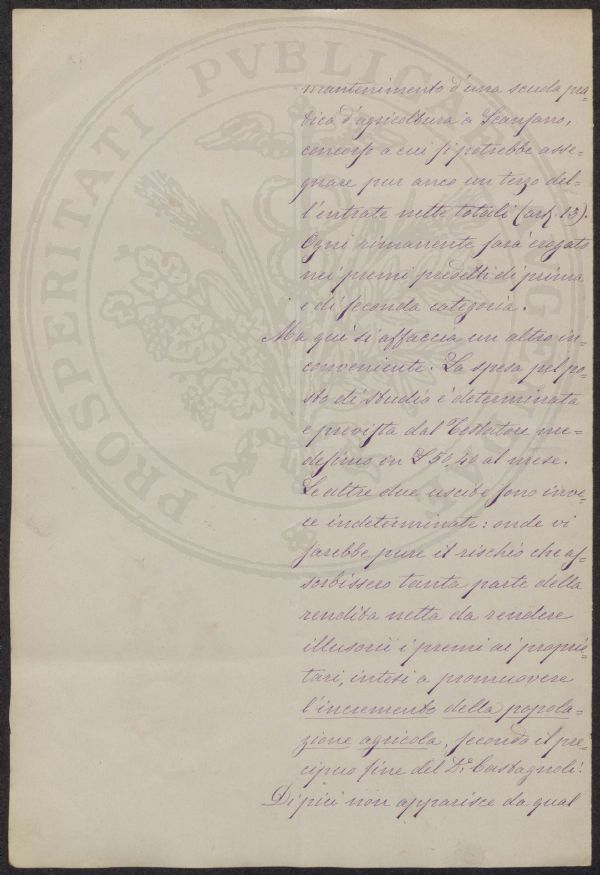 mantenimento d'una scuola pra-
tica d'agricoltura a Scansano,
concorso a cui si potrebbe asse-
gnare pur anco un terzo del-
l'entrate nette totali (art. 13).
Ogni rimanente sarà erogato
nei premi predetti di prima
e di seconda categoria.
Ma qui si affaccia un altro in-
conveniente. La spesa pel po-
sto di studio è determinata
e prevista dal Testatore me-
desimo in £ 50,40 al mese.
Le altre due uscite sono inve-
ce indeterminate: onde vi
sarebbe pure il rischio che as-
sorbissero tanta parte della
rendita netta da rendere
illusorii i premi ai proprie-
tari, intesi a promuovere
l'incremento della popola-
zione agricola, secondo il pre-
cipuo fine del Dr. Castagnoli!
Di più non apparisce da qual
PROSPERITATI PVBLICAE